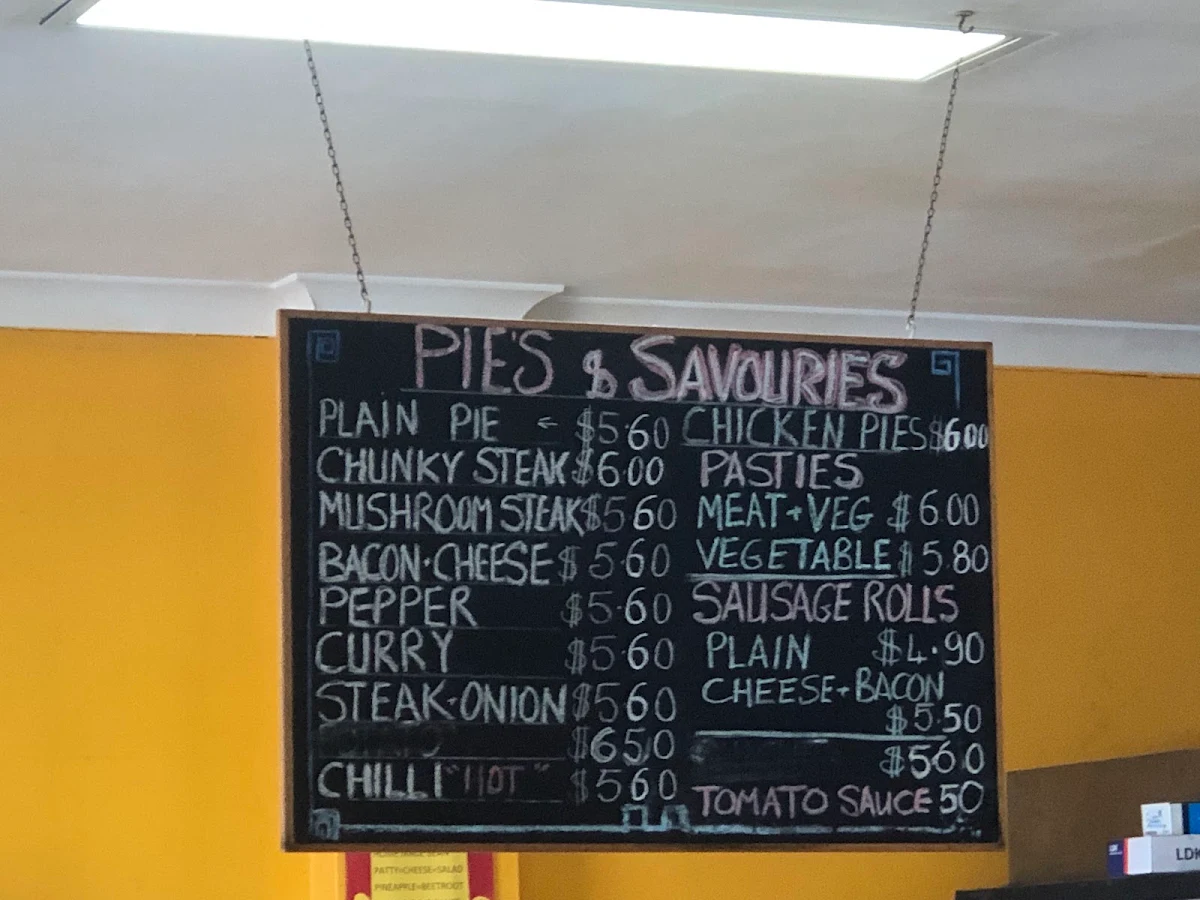 PIE'S & SAVOURIES
PLAIN PIE ← $5.60
CHUNKY STEAK $6.00
MUSHROOM STEAK $5.60
BACON·CHEESE $5.60
PEPPER $5.60
CURRY $5.60
STEAK·ONION $5.60
$6.50
CHILLI "HOT" $5.60
CHICKEN PIES $6.00
PASTIES
MEAT+VEG $6.00
VEGETABLE $5.80
SAUSAGE ROLLS
PLAIN $4.90
CHEESE+BACON
$5.50
$5.60
TOMATO SAUCE 50
PATTY+CHEESE+SALAD
PINEAPPLE+BEETROOT
LDK